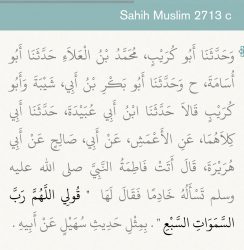 Sahih Muslim 2713 c
وَحَدَّثَنَا أَبُو كُرَيْبٍ، مُحَمَّدُ بْنُ الْعَلاَءِ حَدَّثَنَا أَبُو
أُسَامَةَ، ح وَحَدَّثَنَا أَبُو بَكْرِ بْنُ أَبِي، شَيْبَةَ وَأَبُو
كُرَيْبٍ قَالاَ حَدَّثَنَا ابْنُ أَبِي عُبَيْدَةَ، حَدَّثَنَا أَبِي
كِلاَهُمَا، عَنِ الأَعْمَشِ، عَنْ أَبِي، صَالِحٍ عَنْ أَبِي
هُرَيْرَةَ، قَالَ أَتَتْ فَاطِمَةُ النَّبِيَّ صلى الله عليه
وسلم تَسْأَلُهُ خَادِمًا فَقَالَ لَهَا ‏"‏ قُولِي اللَّهُمَّ رَبَّ
السَّمَوَاتِ السَّبْعِ ‏"‏ ‏.‏ بِمِثْلِ حَدِيثِ سُهَيْلٍ عَنْ أَبِيهِ ‏.‏